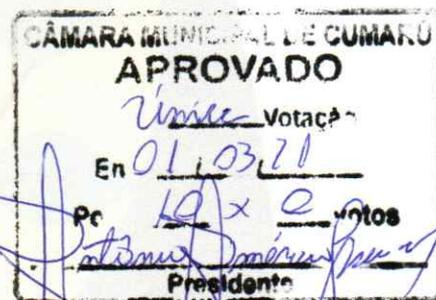 CÂMARA MUNICIPAL DE CUMARÚ
APROVADO
Única Votação
Em 01 / 03 / 21
Por 10 x 0 votos
Antônio Américo
Presidente